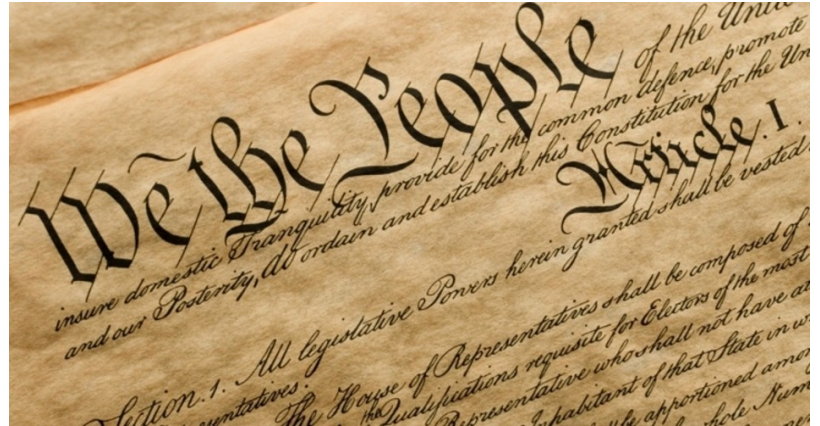 We the People of the Unite
insure domestic Tranquility, provide for the common defence, promote
and our Posterity, do ordain and establish this Constitution for the Un
Article. I.
Section. 1. All legislative Powers herein granted shall be vested
entatives.
The House of Representatives shall be composed of
Qualifications requisite for Electors of the most
Representative who shall not have a
Inhabitant of that State in w
be apportioned amon
whole Num